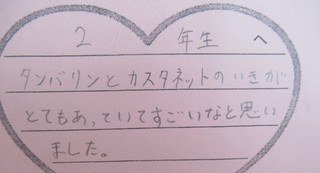 2 年生 へ
タンバリンとカスタネットのいきが
とてもあっていてすごいなと思い
ました。